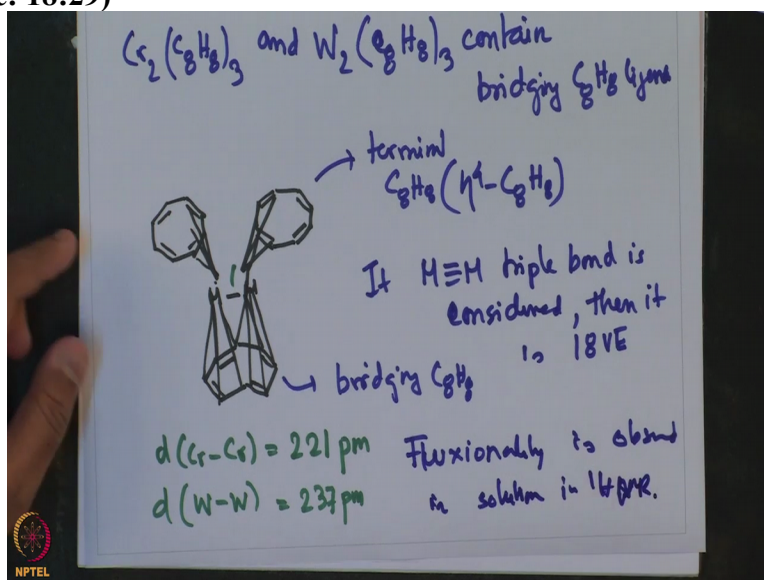 c. 18:29)
Cr₂(C₈H₈)₃ and W₂(C₈H₈)₃ contain
bridging C₈H₈ ligans
terminl
C₈H₈(η⁴-C₈H₈)
If M≡M triple bond is
considered, then it
is 18VE
M-M
bridging C₈H₈
d(Cr-Cr) = 221 pm
d(W-W) = 237 pm
Fluxionality is obsred
in solution in ¹H NMR.
NPTEL